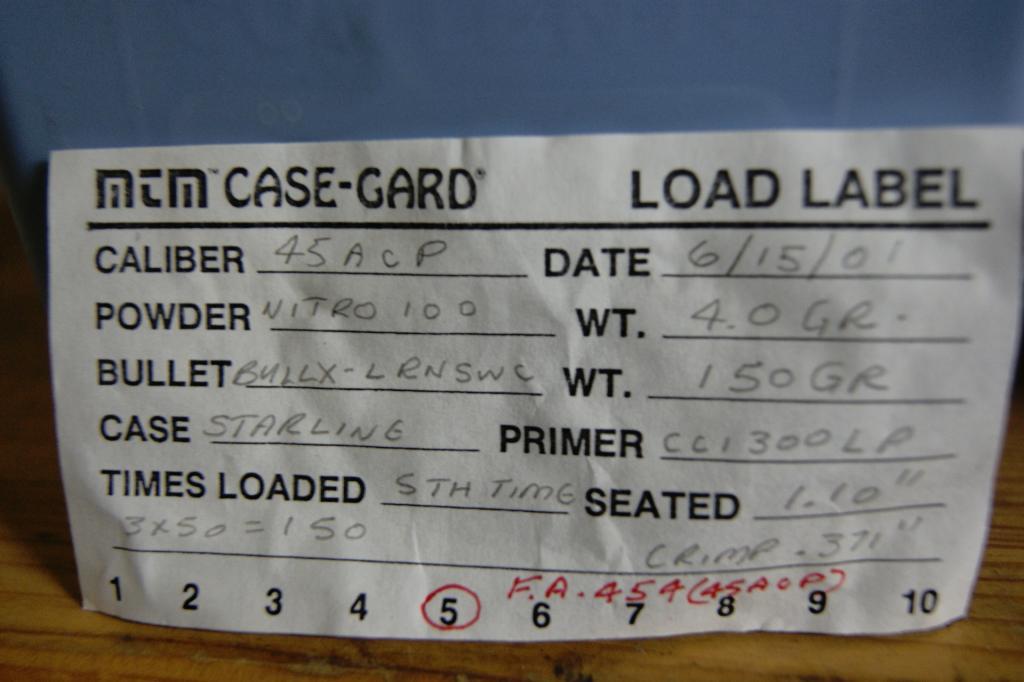 mTm™ CASE-GARD® LOAD LABEL
CALIBER 45 ACP DATE 6/15/01
POWDER NITRO 100 WT. 4.0 GR.
BULLET BULLX-LRNSWC WT. 150 GR
CASE STARLINE PRIMER CCI 300 LP
TIMES LOADED 5TH TIME SEATED 1.10"
3x50 = 150 CRIMP .371"
F.A. 454 (45ACP)
1 2 3 4 5 6 7 8 9 10